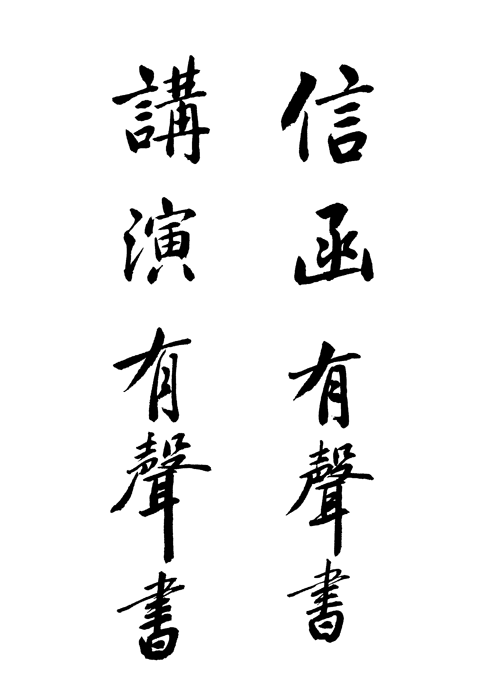 信函有聲書
講演有聲書